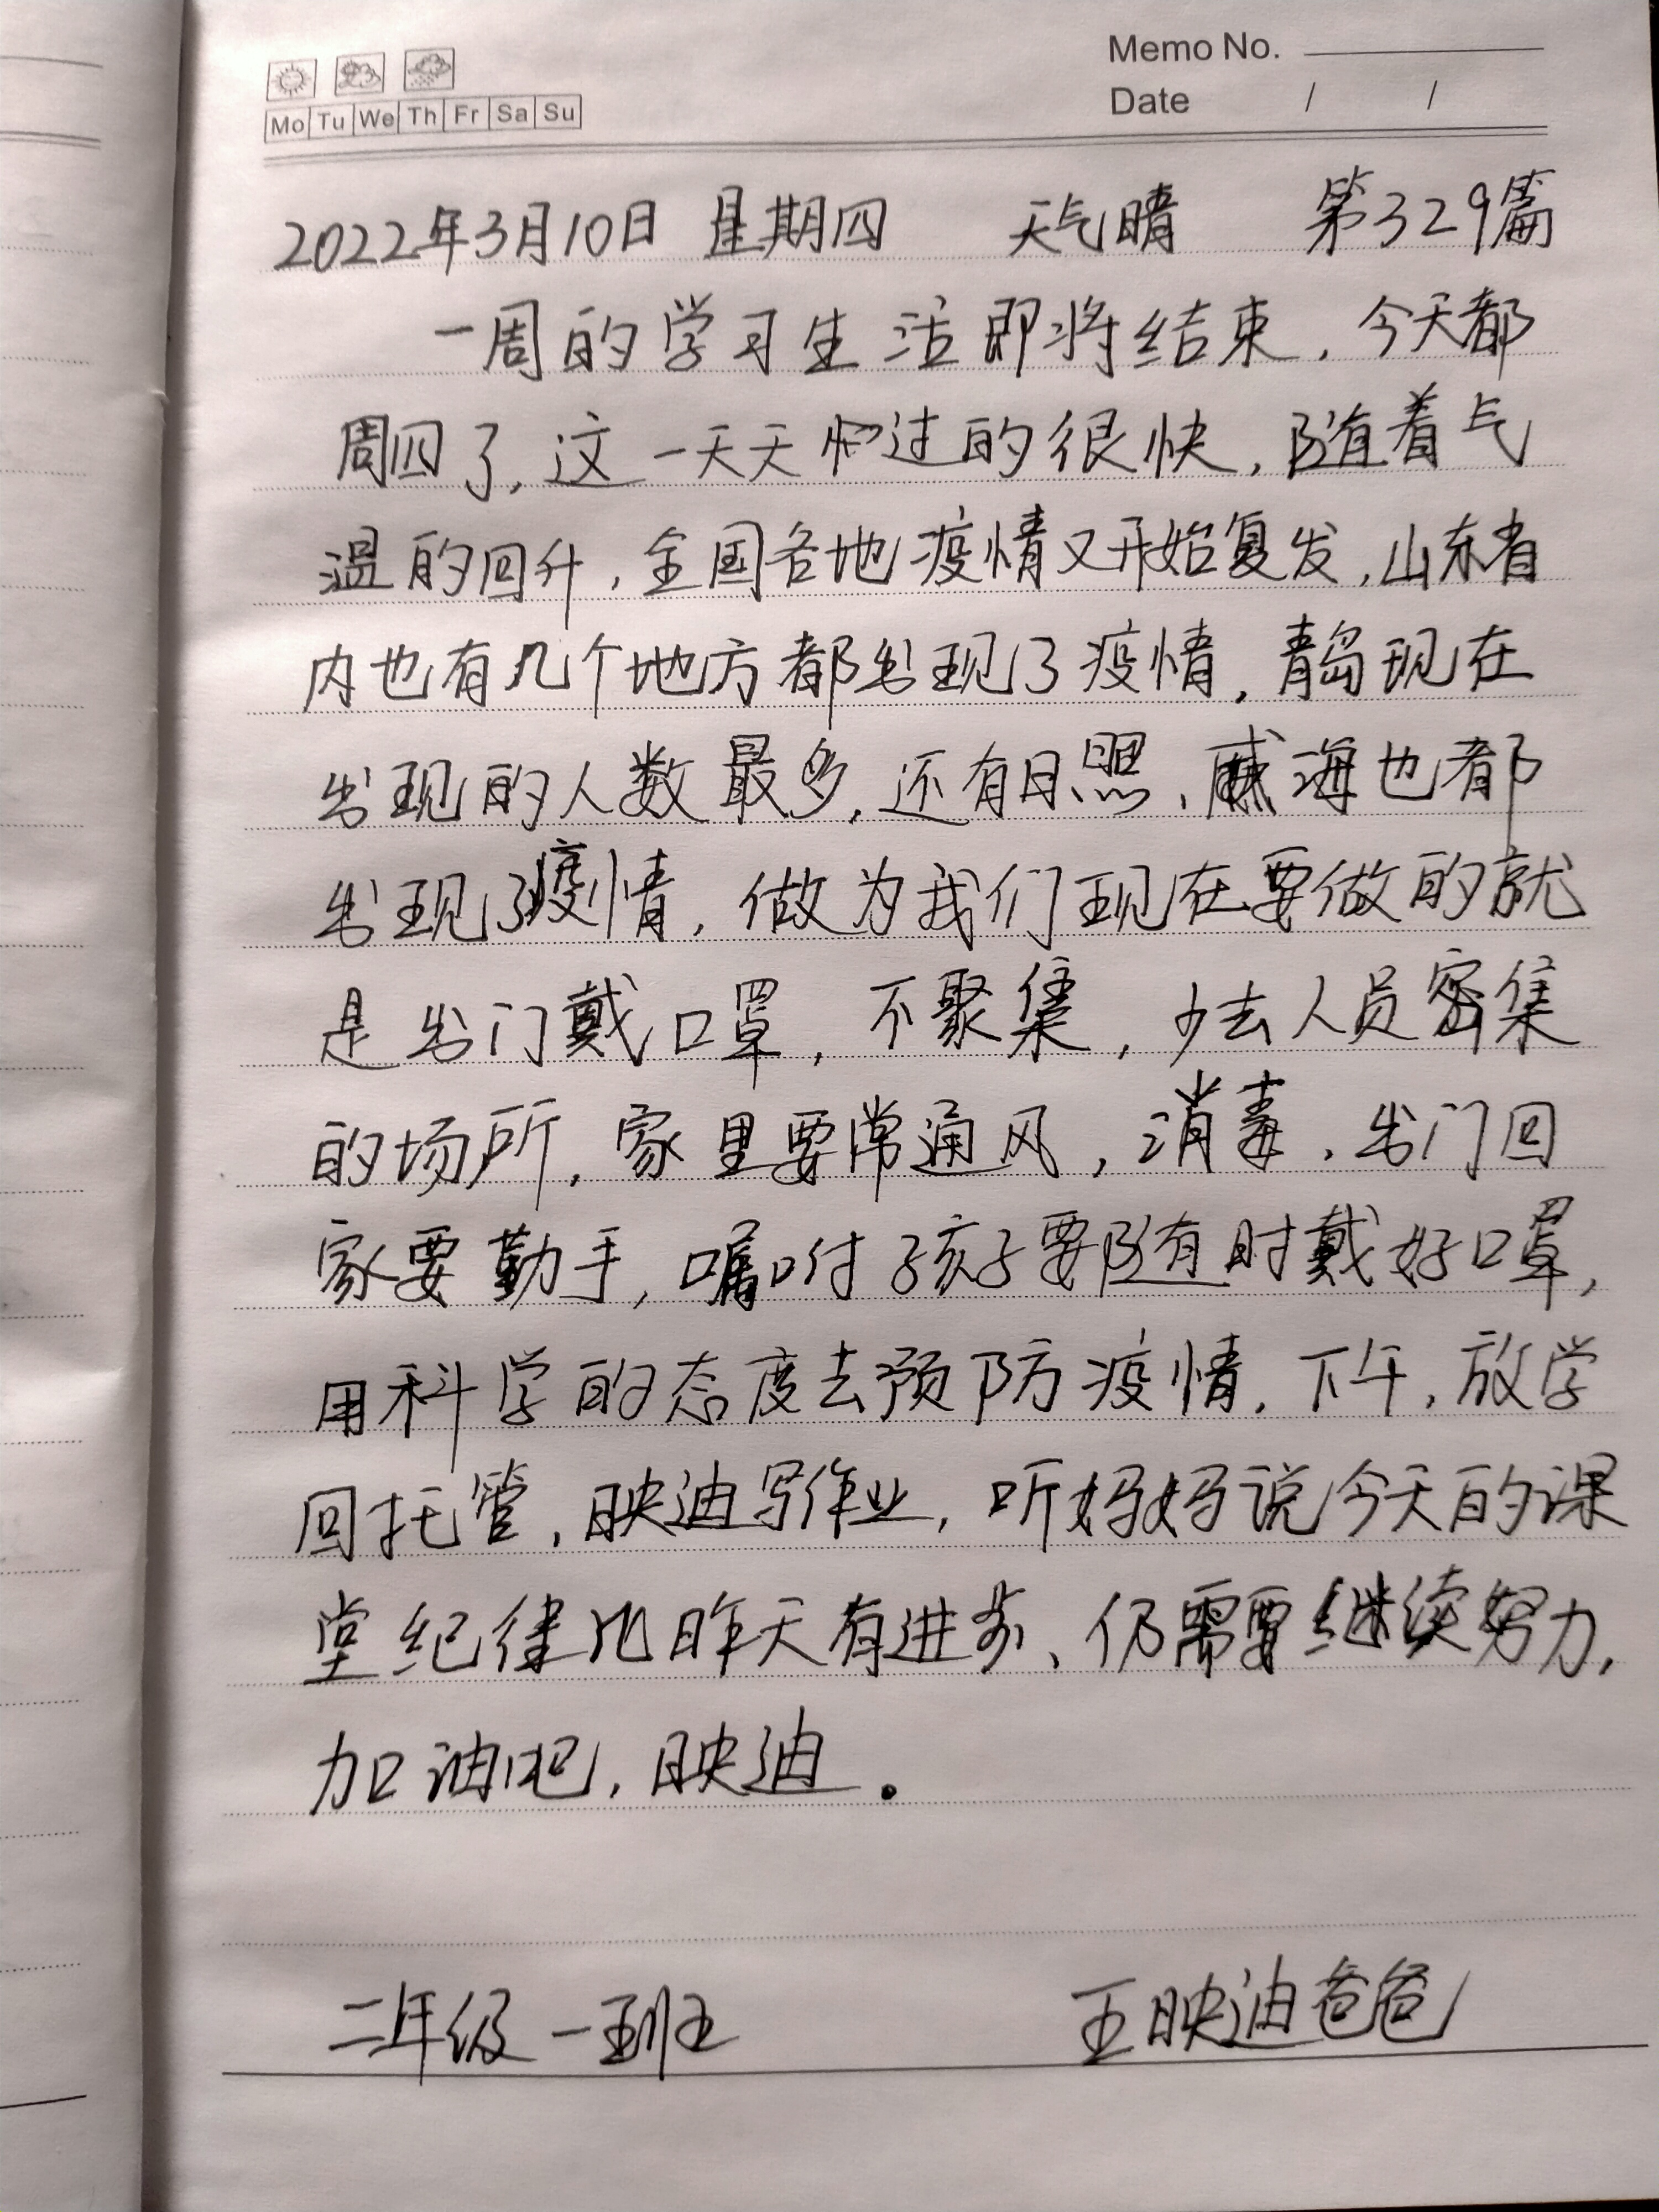 Memo No.
Mo Tu We Th Fr Sa Su
Date / /
2022年3月10日 星期四 天气晴 第329篇
一周的学习生活即将结束，今天都
周四了，这一天天的过的很快，随着气
温的回升，全国各地疫情又开始复发，山东省
内也有几个地方都出现了疫情，青岛现在
出现的人数最多，还有日照、威海也都
出现了疫情，做为我们现在要做的就
是出门戴口罩，不聚集，少去人员密集
的场所，家里要常通风，消毒，出门回
家要勤手，嘱咐孩子要随时戴好口罩，
用科学的态度去预防疫情。下午，放学
回托管，映迪写作业，听妈妈说今天的课
堂纪律比昨天有进步、仍需要继续努力，
加油吧，映迪。
二年级一班 王映迪爸爸